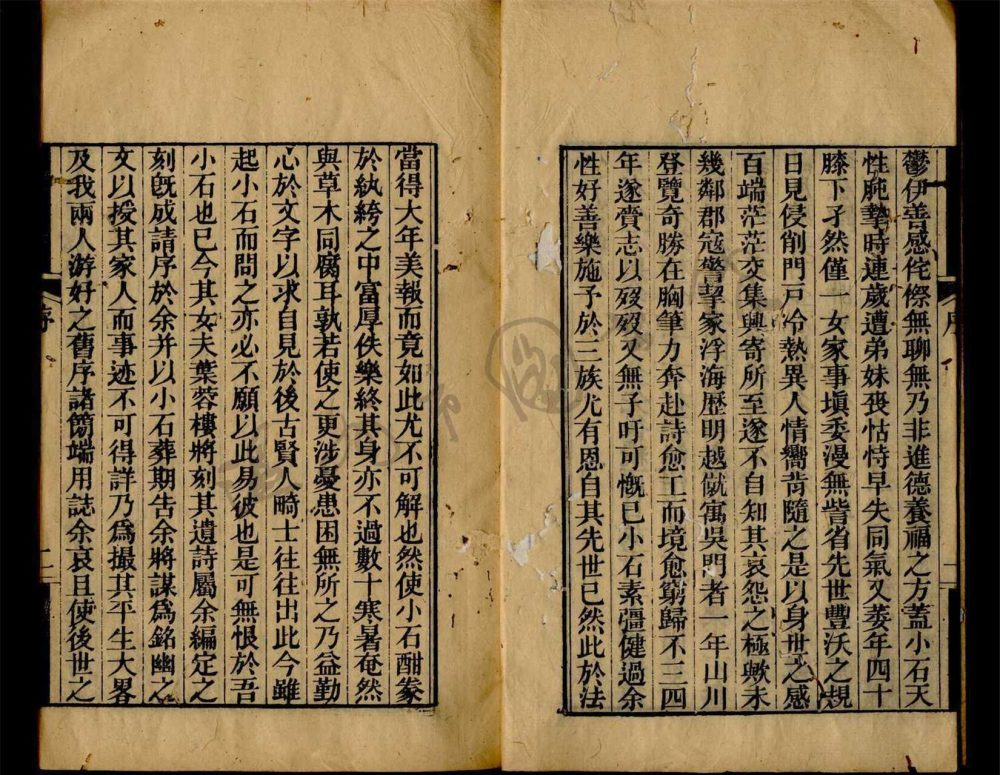 鬱伊善感侘傺無聊無乃非進德養福之方葢小石天
性肫摯時連歲遭弟妹喪怙恃早失同氣又萎年四十
膝下孑然僅一女家事塡委漫無訾省先世豐沃之規
日見侵削門戸冷熱異人情嚮背隨之是以身世之感
百端茫茫交集興寄所至遂不自知其哀怨之極歟未
幾鄰郡寇警挈家浮海歷明越僦寓吳門者一年山川
登覽奇勝在胸筆力奔赴詩愈工而境愈窮歸不三四
年遂賫志以歿歿又無子吁可慨已小石素彊健過余
性好善樂施予於三族尤有恩自其先世已然此於法
當得大年美報而竟如此尤不可解也然使小石酣豢
於紈絝之中富厚佚樂終其身亦不過數十寒暑奄然
與草木同腐耳孰若使之更涉憂患困無所之乃益勤
心於文字以求自見於後古賢人畸士往往出此今雖
起小石而問之亦必不願以此易彼也是可無恨於吾
小石也已今其女夫葉蓉樓將刻其遺詩屬余編定之
刻旣成請序於余并以小石葬期告余將謀爲銘幽之
文以授其家人而事迹不可得詳乃爲撮其平生大畧
及我兩人游好之舊序諸簡端用誌余哀且使後世之
序
二